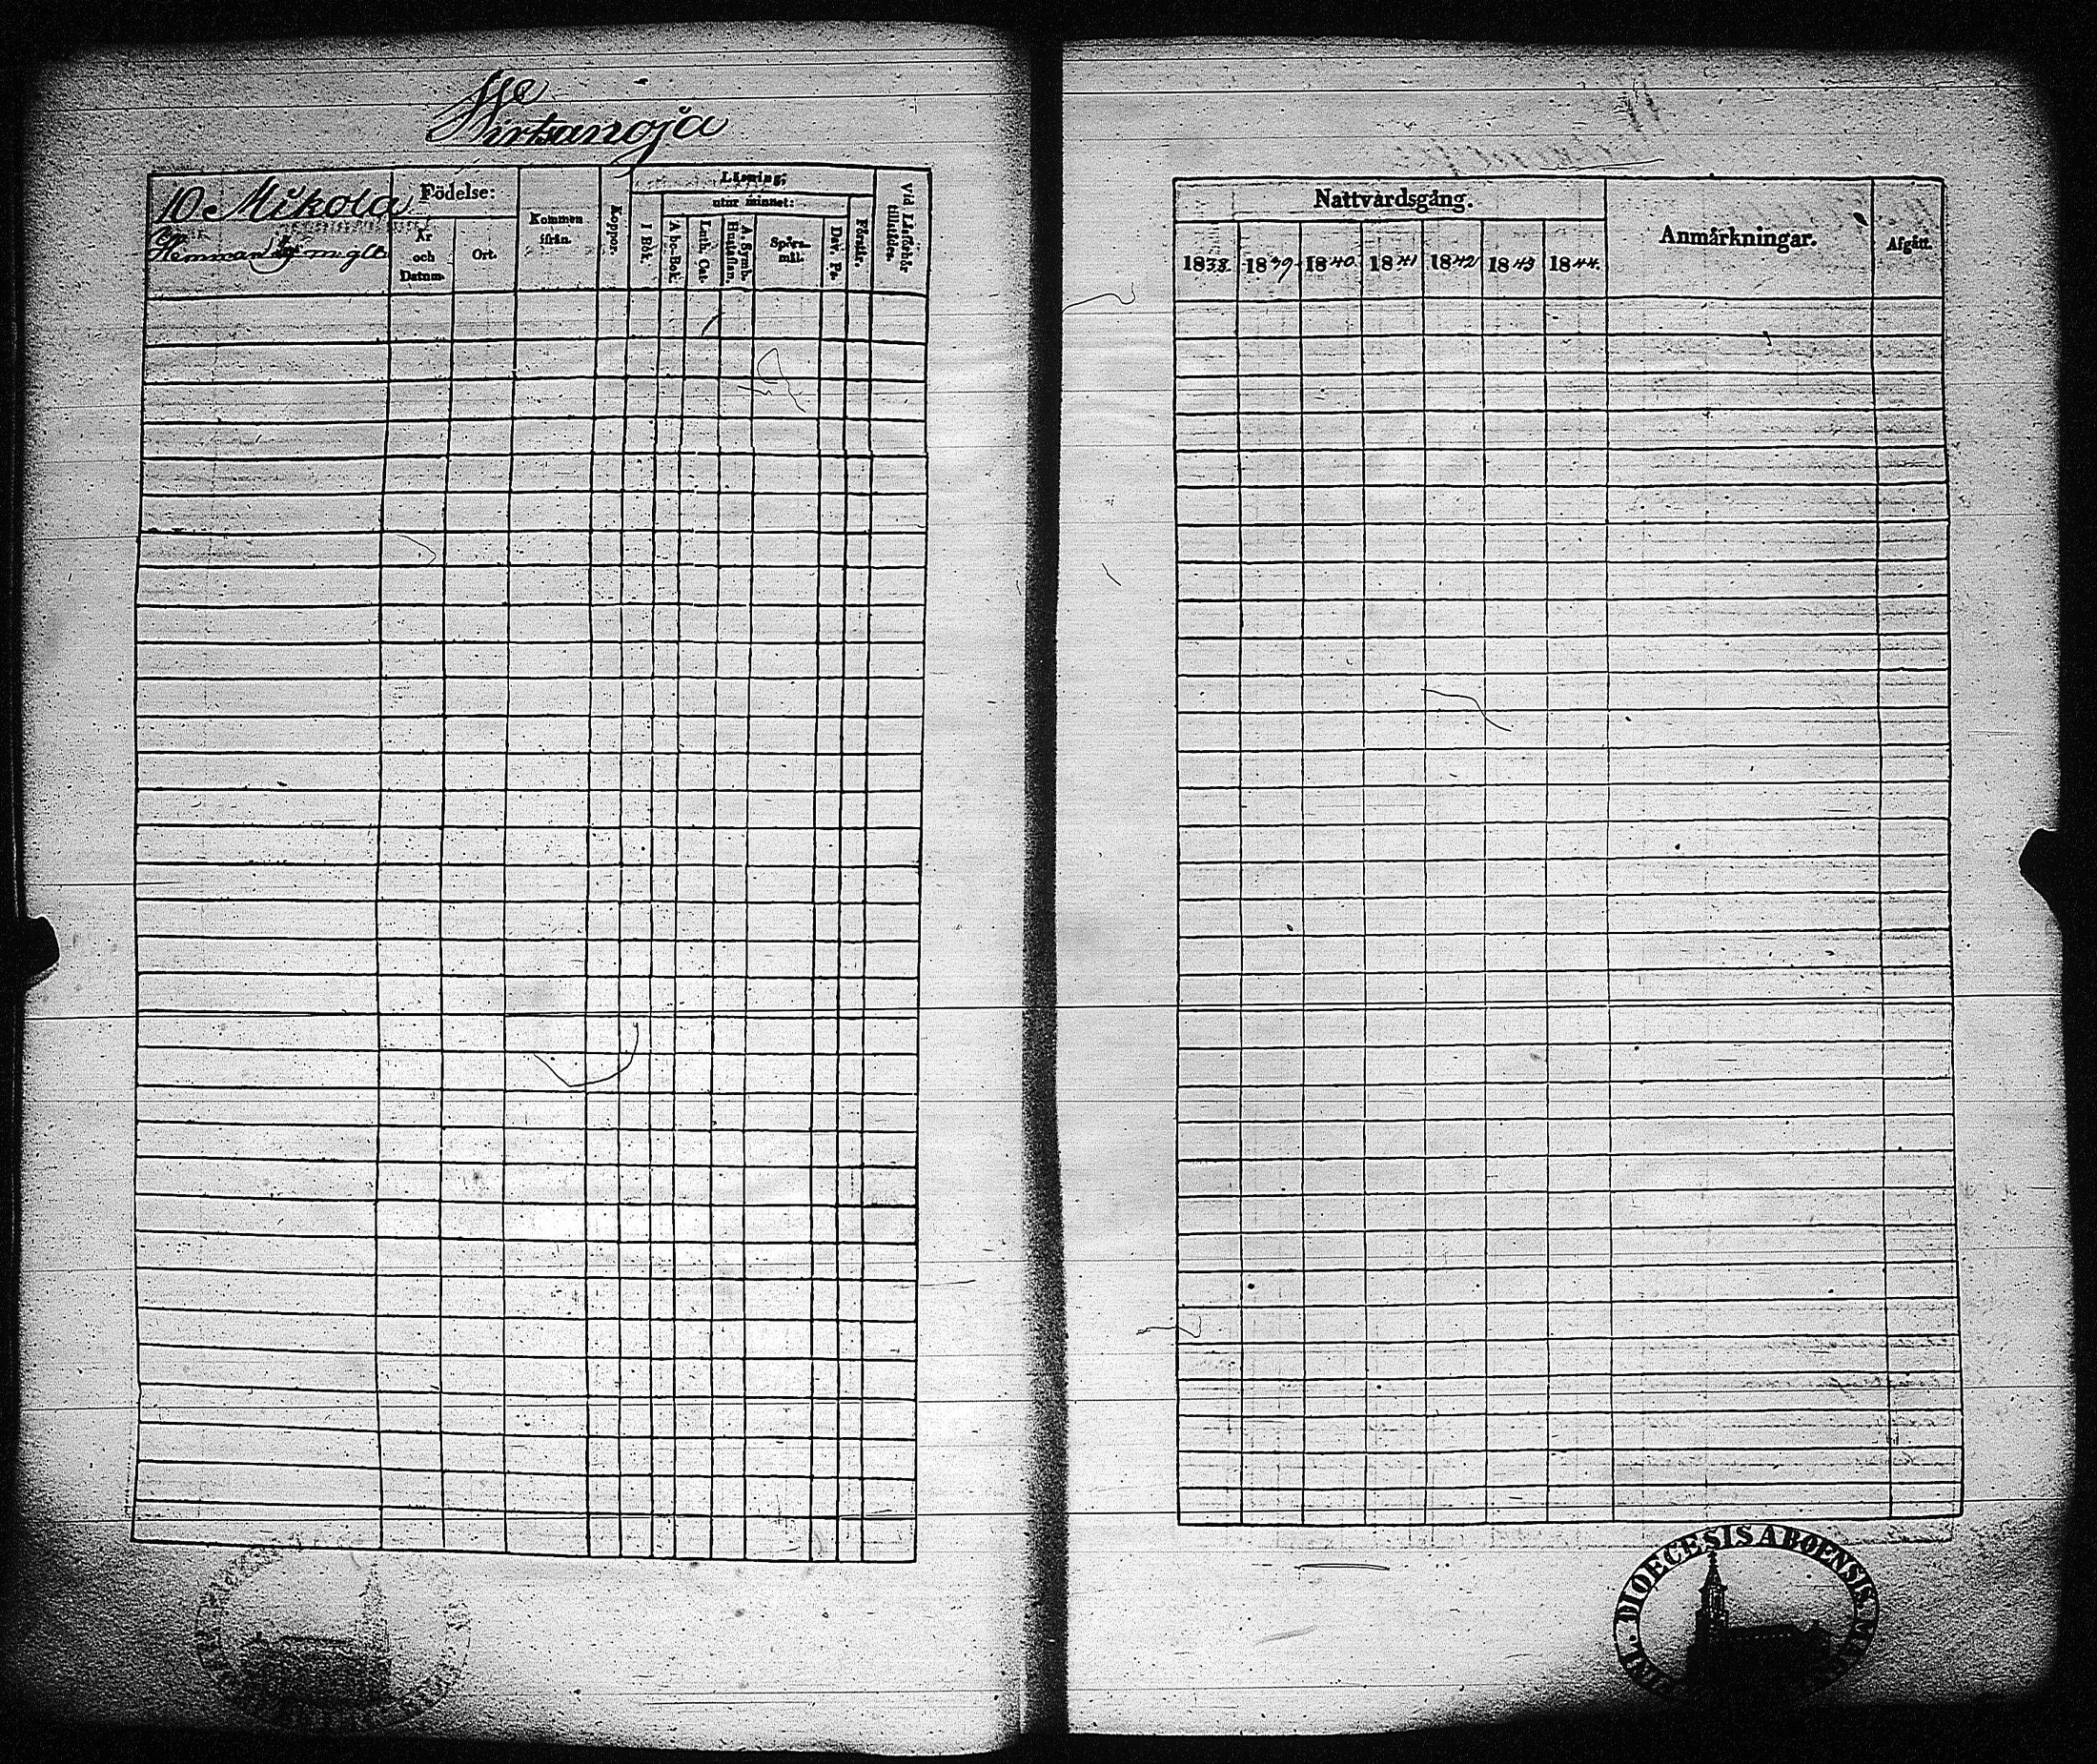 Wirtsanoja
10 Mikola
Hemman mgld
Födelse:
År och Datum.
Ort.
Kommen ifrån.
Koppor.
Läsning;
utur minnet:
I Bok.
A bc-Bok.
Luth. Cat.
Hustaflan.
A. Symb.
Spörsmål.
Dav. Ps.
Förstår.
Vid Läsförhör tillstädes.
Nattvardsgång.
1838.
1839
1840
1841
1842
1843
1844.
Anmärkningar.
Afgått.
DIOECESIS ABOENSIS